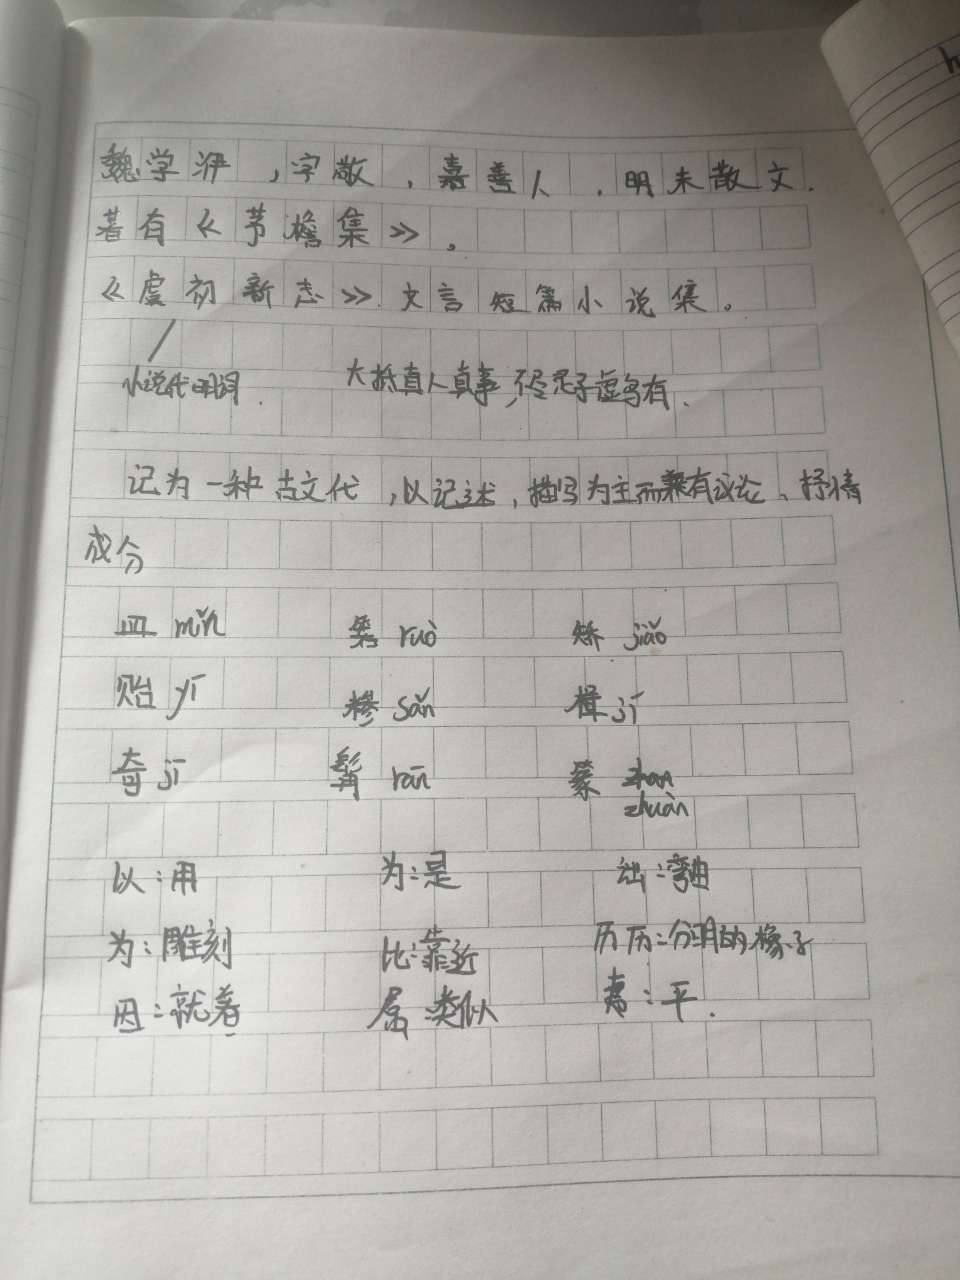 魏学洢,字敬,嘉善人,明末散文.
著有《茅檐集》。
《虞初新志》.文言短篇小说集。
小说代名词. 大抵真人真事,不尽是子虚乌有.
记为一种古文代,以记述,描写为主而兼有议论、抒情
成分
皿 mǐn 箬 ruò 矫 jiǎo
贻 yí 糁 sǎn 楫 jí
奇 jī 髯 rán 篆 zhuàn
以:用 为:是 诎:弯曲
为:雕刻 比:靠近 历历:分明的様子
因:就着 属:类似 夷:平.